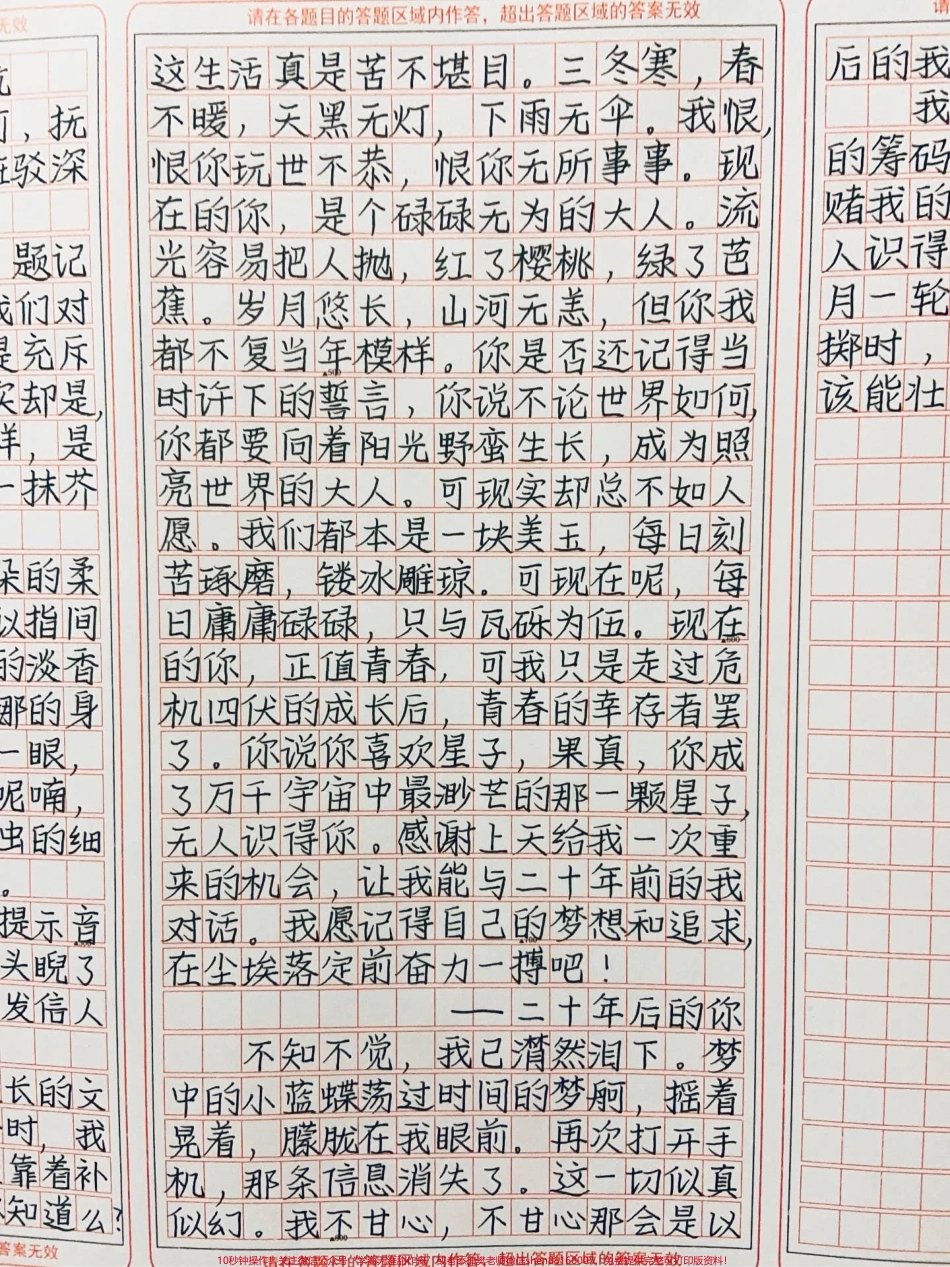 请在各题目的答题区域内作答，超出答题区域的答案无效
这生活真是苦不堪目。三冬寒，春
不暖，天黑无灯，下雨无伞。我恨，
恨你玩世不恭，恨你无所事事。现
在的你，是个碌碌无为的大人。流
光容易把人抛，红了樱桃，绿了芭
蕉。岁月悠长，山河无恙，但你我
都不复当年模样。你是否还记得当
时许下的誓言，你说不论世界如何，
你都要向着阳光野蛮生长，成为照
亮世界的大人。可现实却总不如人
愿。我们都本是一块美玉，每日刻
苦琢磨，镂冰雕琼。可现在呢，每
日庸庸碌碌，只与瓦砾为伍。现在
的你，正值青春，可我只是走过危
机四伏的成长后，青春的幸存者罢
了。你说你喜欢星子，果真，你成
了万千宇宙中最渺茫的那一颗星子，
无人识得你。感谢上天给我一次重
来的机会，让我能与二十年前的我
对话。我愿记得自己的梦想和追求，
在尘埃落定前奋力一搏吧！
——二十年后的你
不知不觉，我已潸然泪下。梦
中的小蓝蝶荡过时间的梦舸，摇着
晃着，朦胧在我眼前。再次打开手
机，那条信息消失了。这一切似真
似幻。我不甘心，不甘心那会是以
无效
，抚
驳深
题记
我们对
是充斥
实却是，
样，是
一抹芥
朵的柔
以指间
的淡香
娜的身
一眼，
呢喃，
出的细
。
提示音
头睨了
发信人
长的文
时，我
靠着补
知道么？
答案无效
请
后的我
我
的筹码
赌我的
人识得
月一轮
掷时，
该能壮
超出答题区域的答案无效